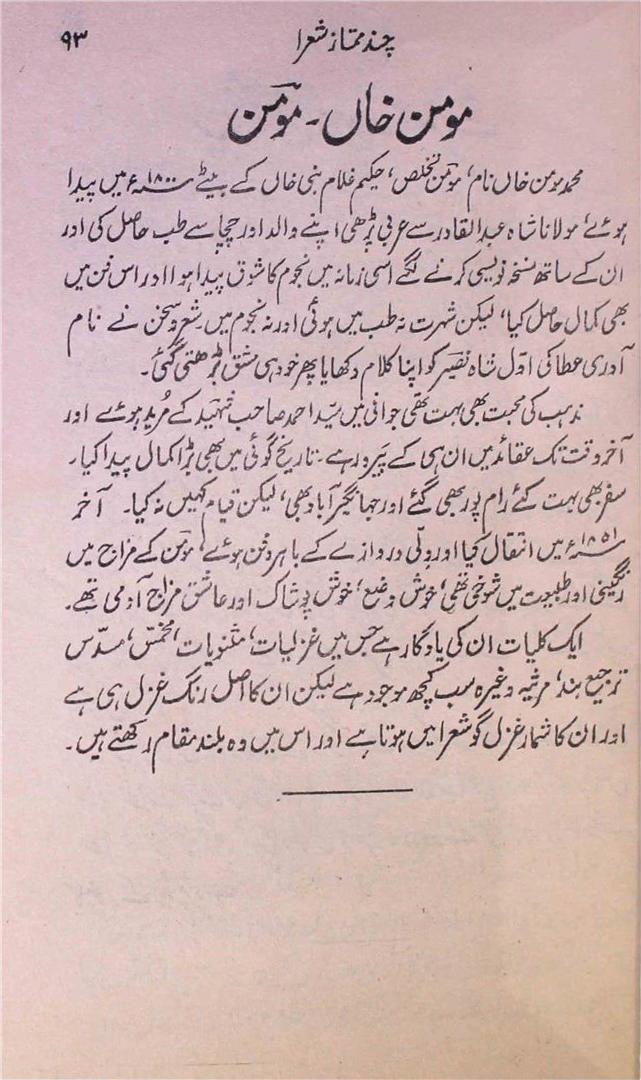 چند ممتاز شعرا ۹۳
مومن خاں۔ مومنؔ
محمد مومن خاں نام، مومنؔ تخلص، حکیم غلام نبی خاں کے بیٹے ۱۸۰۰ء میں پیدا
ہوئے، مولانا شاہ عبدالقادر سے عربی پڑھی اپنے والد اور چچا سے طب حاصل کی اور
ان کے ساتھ نسخہ نویسی کرنے لگے اسی زمانہ میں نجوم کا شوق پیدا ہوا اور اس فن میں
بھی کمال حاصل کیا، لیکن شہرت نہ طب میں ہوئی اور نہ نجوم میں۔ شعر و سخن نے نام
آوری عطا کی اوّل شاہ نصیرؔ کو اپنا کلام دکھایا پھر خود ہی مشق بڑھتی گئی۔
مذہب کی محبت بھی بہت تھی جوانی میں سیّد احمد صاحب شہید کے مُرید ہوئے اور
آخر وقت تک عقائد میں ان ہی کے پیرو رہے۔ تاریخ گوئی میں بھی بڑا کمال پیدا کیا۔
سفر بھی بہت کئے رام پور بھی گئے اور جہانگیر آباد بھی، لیکن قیام کہیں نہ کیا۔ آخر
۱۸۵۱ء میں انتقال کیا اور دلّی دروازے کے باہر دفن ہوئے، مومنؔ کے مزاج میں
رنگینی اور طبیعت میں شوخی تھی، خوش وضع، خوش پوشاک اور عاشق مزاج آدمی تھے۔
ایک کلیات ان کی یادگار ہے جس میں غزلیات، مثنویات، مخمّس، مسدّس
ترجیع بند، مرثیہ وغیرہ سب کچھ موجود ہے لیکن ان کا اصل رنگ غزل ہی ہے
اور ان کا شمار غزل گو شعرا میں ہوتا ہے اور اس میں وہ بلند مقام رکھتے ہیں۔